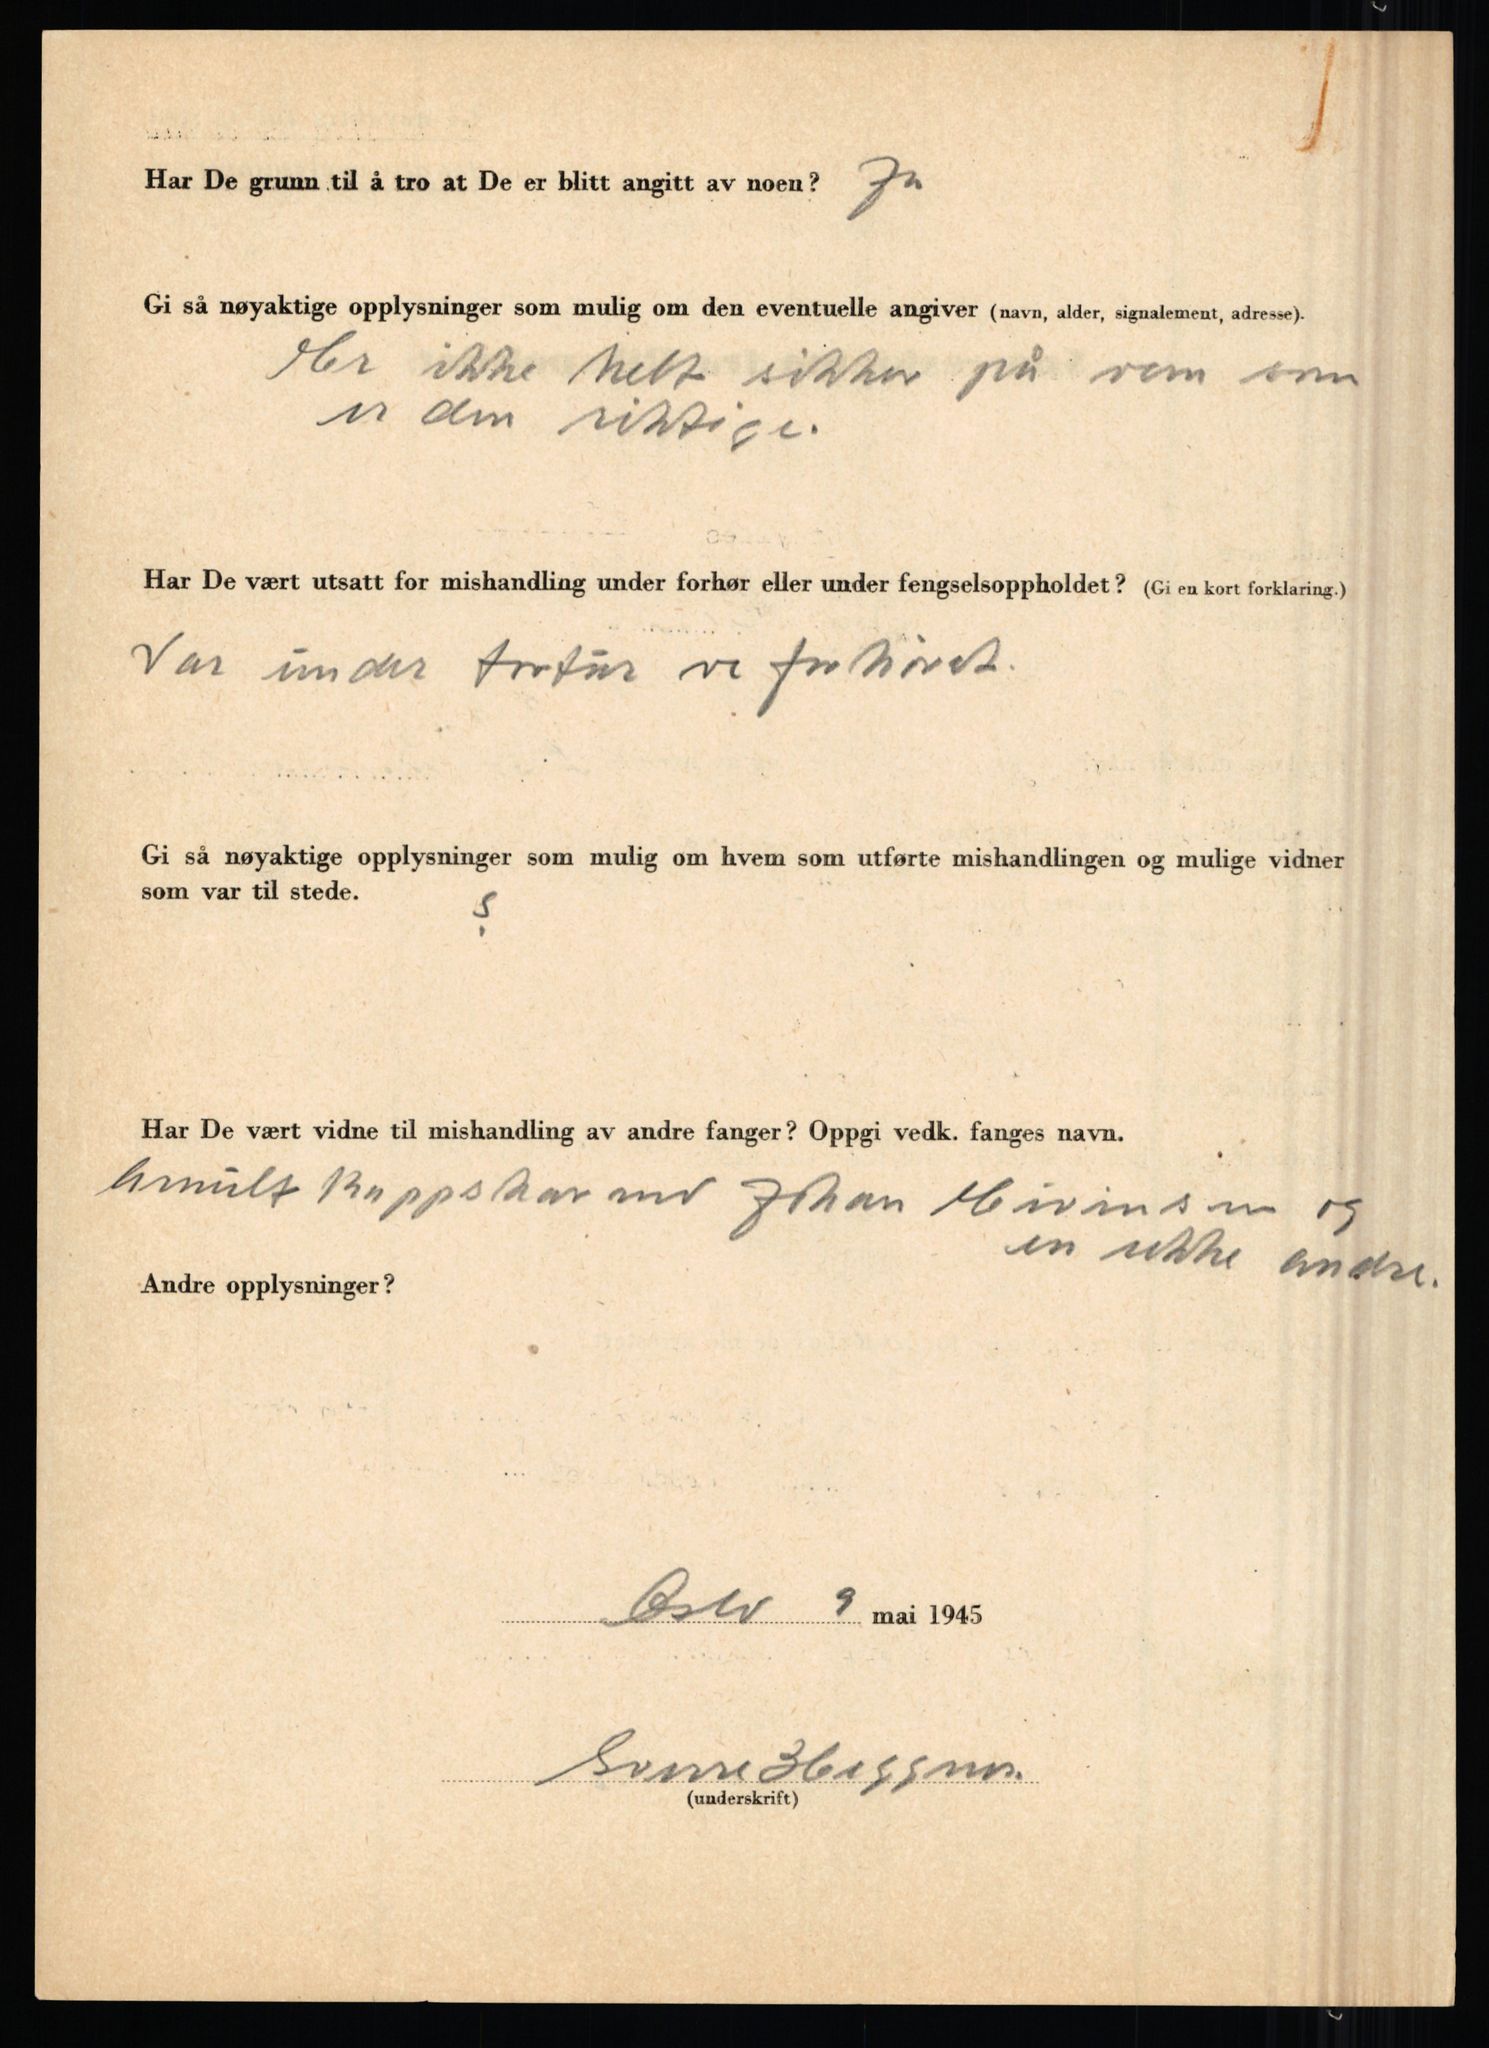 Har De grunn til å tro at De er blitt angitt av noen? Ja
Gi så nøyaktige opplysninger som mulig om den eventuelle angiver (navn, alder, signalement, adresse).
Er ikke helt sikker på vem som
er den riktige.
Har De vært utsatt for mishandling under forhør eller under fengselsoppholdet? (Gi en kort forklaring.)
Var under tortur ve forhøret.
Gi så nøyaktige opplysninger som mulig om hvem som utførte mishandlingen og mulige vidner
som var til stede. ?
Har De vært vidne til mishandling av andre fanger? Oppgi vedk. fanges navn.
Johan og
en rekke andre.
Andre opplysninger?
Oslo 9 mai 1945
(underskrift)